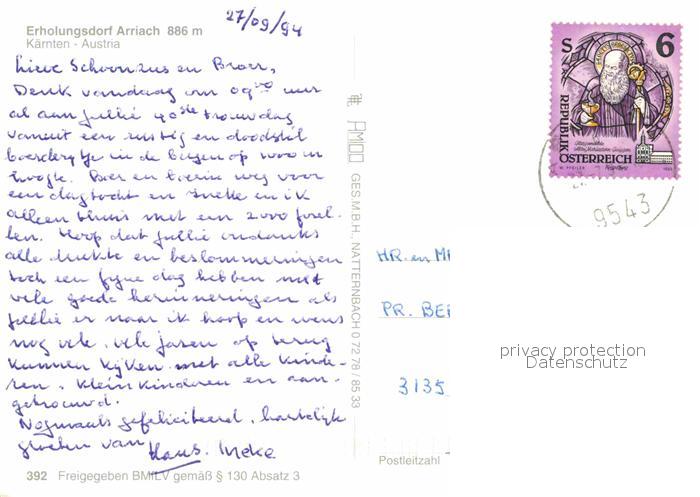 27/09/94
Erholungsdorf Arriach 886 m
Kärnten - Austria
Lieve Schoonzus en Broer,
Denk vandaag om 09⁰⁰ uur
al aan jullie 40ste trouwdag
vanuit een rustig en doodstil
boerderytje in de bergen op 1100 m
hoogte. Boer en boerin weg voor
een dagtocht en Ineke en ik
alleen thuis met een 2000 forel-
len. Hoop dat jullie ondanks
alle drukte en beslommeringen
toch een fyne dag hebben met
vele goede herinneringen als
jullie er naar ik hoop en wens
nog vele, vele jaren op terug
kunnen kyken met alle kinde-
ren, kleinkinderen en aan-
getrouwd.
Nogmaals gefeliciteerd, hartelijk
groeten van Hans. Ineke
392 Freigegeben BMfLV gemäß § 130 Absatz 3
AMOD GES.M.B.H. NATTERNBACH 0 72 78 / 85 33
S 6
REPUBLIK
ÖSTERREICH
9543
HR. en M
PR. BE
3135
Postleitzahl
privacy protection
Datenschutz